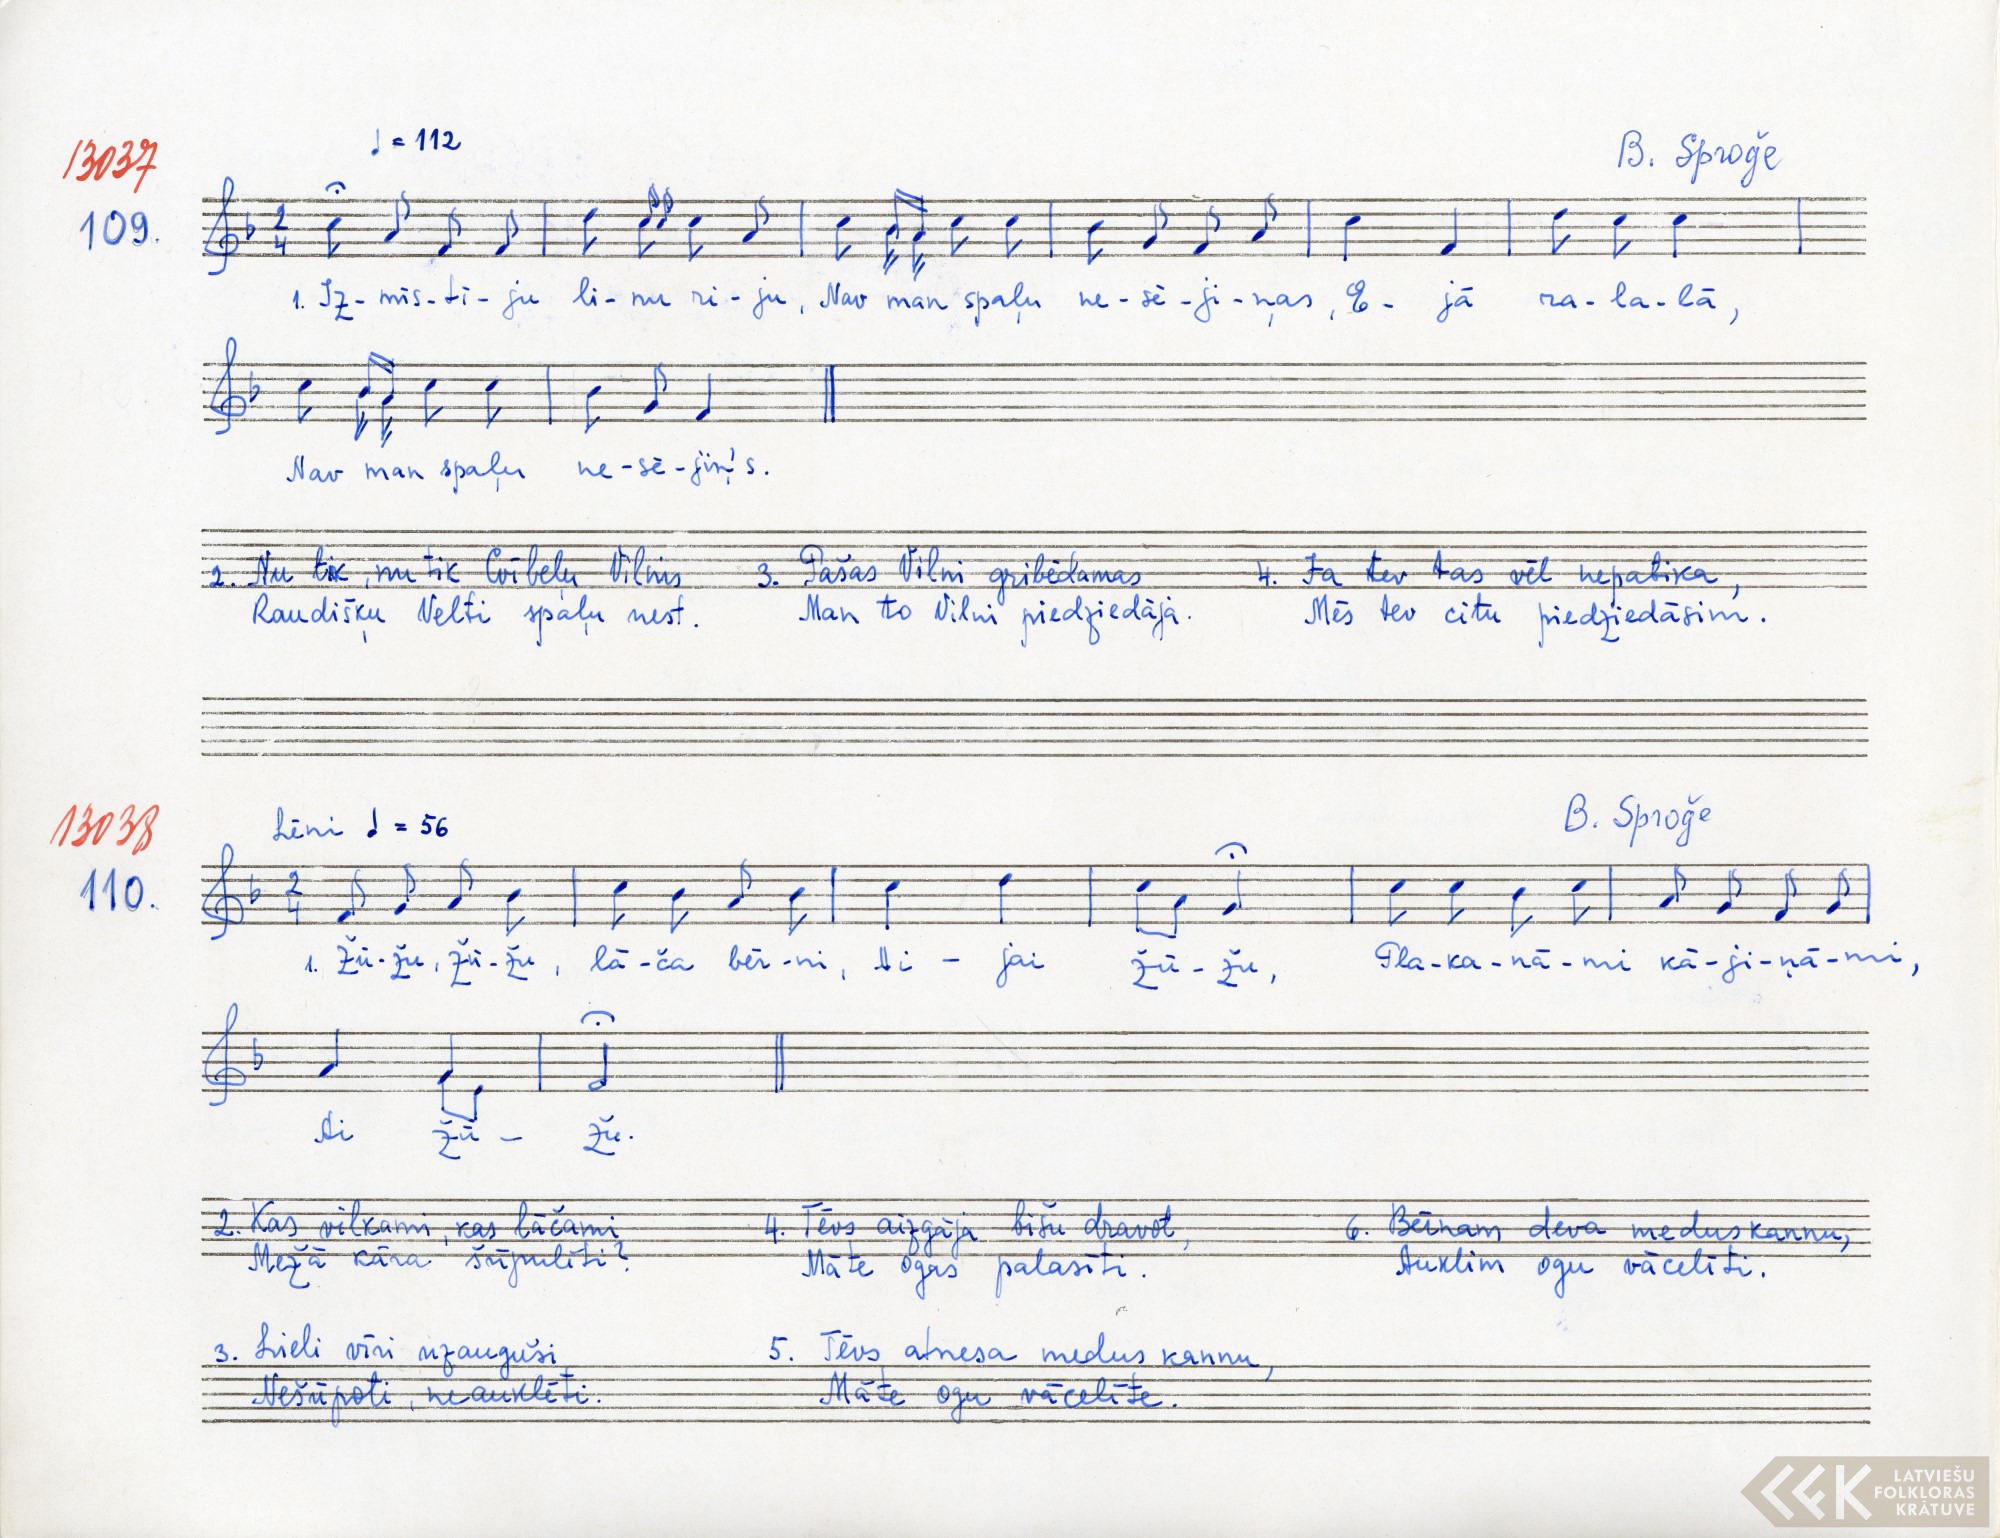 13037
♩ = 112
B. Sproģe
109.
2
4
1. Iz-mīs-tī-ju li-nu ri-ju, Nav man spaļu ne-sē-ji-ņas, E-jā ra-la-lā,
Nav man spaļu ne-sē-jiņ's.
2. Nu tik, nu tik Cvībeļu Vilnis
Raudišķu Velti spaļu nest.
3. Pašas Vilni gribēdamas
Man to Vilni piedziedāja.
4. Ja tev tas vēl nepatika,
Mēs tev citu piedziedāsim.
13038
Lēni ♩ = 56
B. Sproģe
110.
2
4
1. Žū-žu, žū-žu, lā-ča bēr-ni, Ai-jai žū-žu, Pla-ka-nā-mi kā-ji-ņā-mi,
Ai žū-žu.
2. Kas vilkami, kas lāčami
Mežā kāra šūpulīti?
4. Tēvs aizgāja bišu dravot,
Māte ogas palasīti.
6. Bērnam deva medus kannu,
Auklīm ogu vācelīti.
3. Lieli vīri uzauguši
Nešūpoti, neauklēti.
5. Tēvs atnesa medus kannu,
Māte ogu vācelīte.
LATVIEŠU
FOLKLORAS
KRĀTUVE